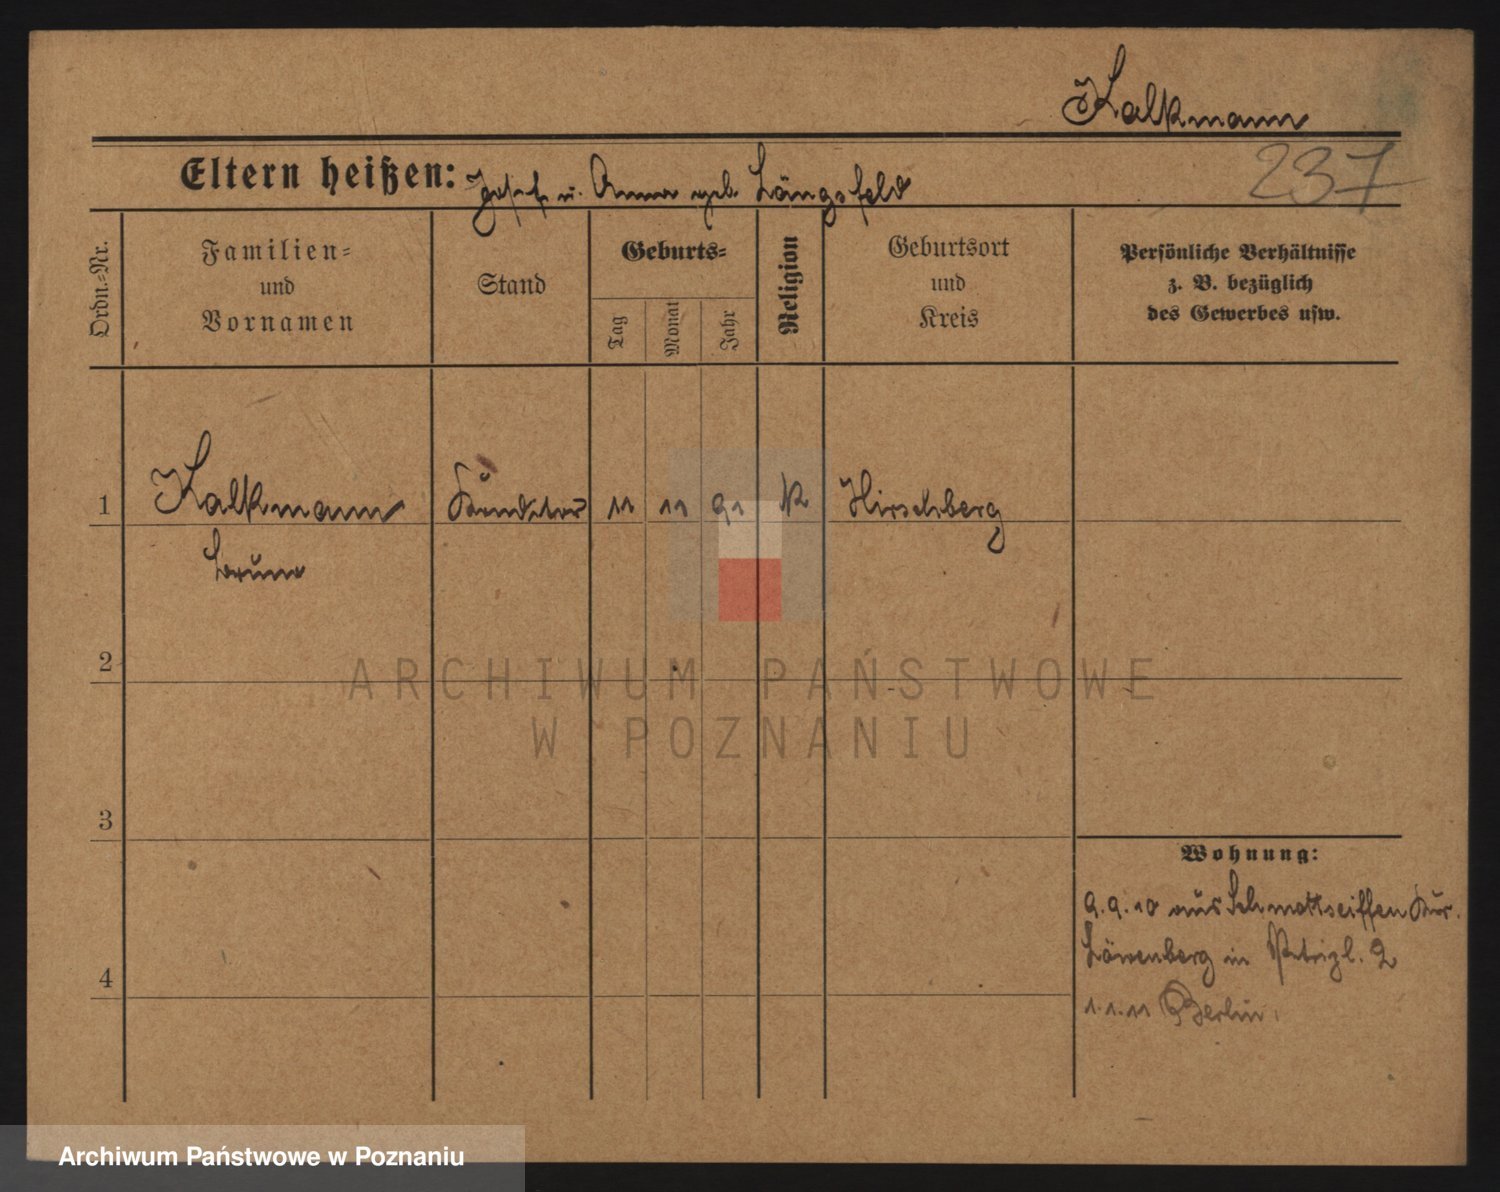 Kalkmann
237
Eltern heißen: Josef u. Anna geb. Längsfeld
Ordn.=Nr.
Familien=
und
Vornamen
Stand
Geburts=
Tag
Monat
Jahr
Religion
Geburtsort
und
Kreis
Persönliche Verhältnisse
z. B. bezüglich
des Gewerbes usw.
1 Kalkmann Konditor 11 11 91 K Hirschberg
Bruno
2
3
4
Wohnung:
9.9.10 aus Schmottseiffen
Löwenberg in Petripl. 2
1.1.11 Berlin.
ARCHIWUM PAŃSTWOWE
W POZNANIU
Archiwum Państwowe w Poznaniu